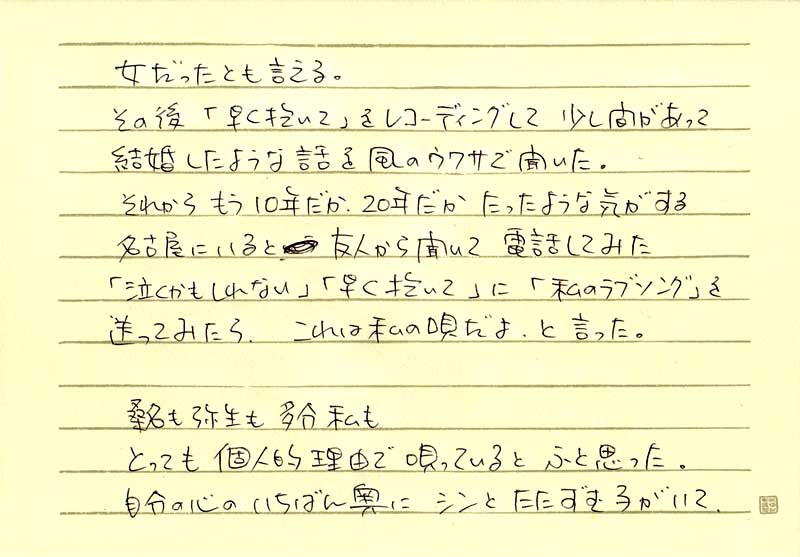 女だったとも言える。
その後「早く抱いて」をレコーディングして 少し間があって
結婚したような話を風のウワサで聞いた。
それからもう10年だか、20年だかたったような気がする
名古屋にいると、友人から聞いて 電話してみた
「泣くかもしれない」「早く抱いて」に「私のラブソング」を
送ってみたら、これは私の唄だよ、と言った。
桑名も弥生も多分私も
とっても個人的理由で唄っているとふと思った。
自分の心のいちばん奥にシンとたたずむ子がいて、